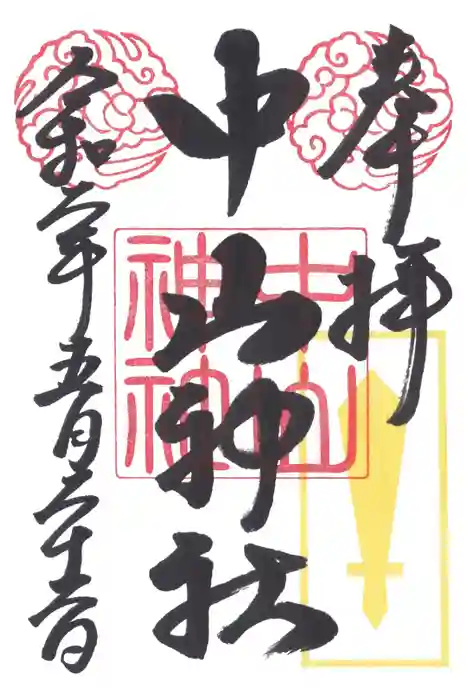 奉拝
中山神社
令和六年五月
中山
神社